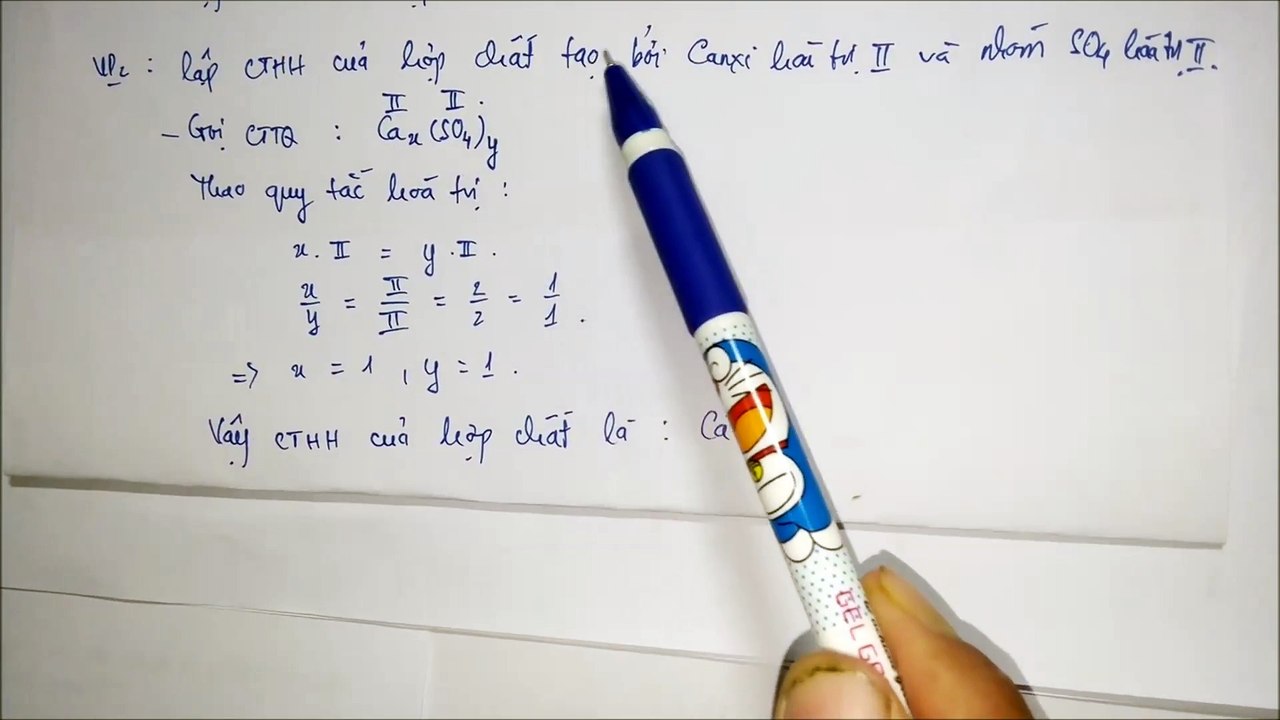 VD2 : lập CTHH của hợp chất tạo bởi Canxi hoá trị II và nhóm SO4 hoá trị II.
II II.
- Gọi CTTQ : Cax(SO4)y
Theo quy tắc hoá trị :
x. II = y . II .
x/y = II/II = 2/2 = 1/1 .
=> x = 1 , y = 1 .
Vậy CTHH của hợp chất là : Ca
GEL